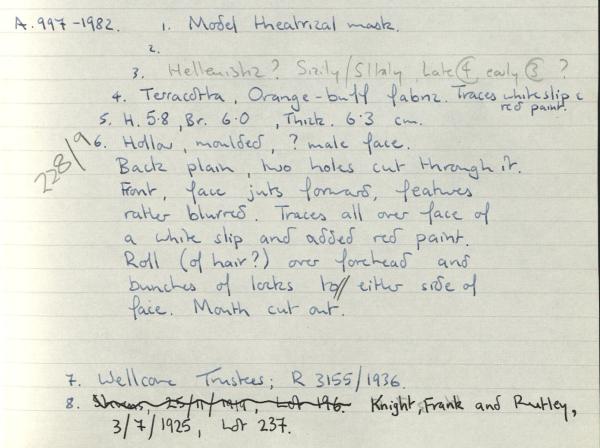 A.997-1982. 1. Model theatrical mask.
2.
3. Hellenistic? Sicily/S Italy, Late 4 early 3 ?
4. Terracotta, Orange-buff fabric. Traces white slip &
red paint.
5. H. 5.8, Br. 6.0, Thick. 6.3 cm.
228/9
6. Hollow, moulded, ? male face.
Back plain, two holes cut through it.
Front, face juts forward, features
rather blurred. Traces all over face of
a white slip and added red paint.
Roll (of hair?) over forehead and
bunches of locks to// either side of
face. Mouth cut out.
7. Wellcome Trustees; R 3155/1936.
8. Stevens, 25/11/1919, Lot 196. Knight, Frank and Rutley,
3/7/1925, Lot 237.